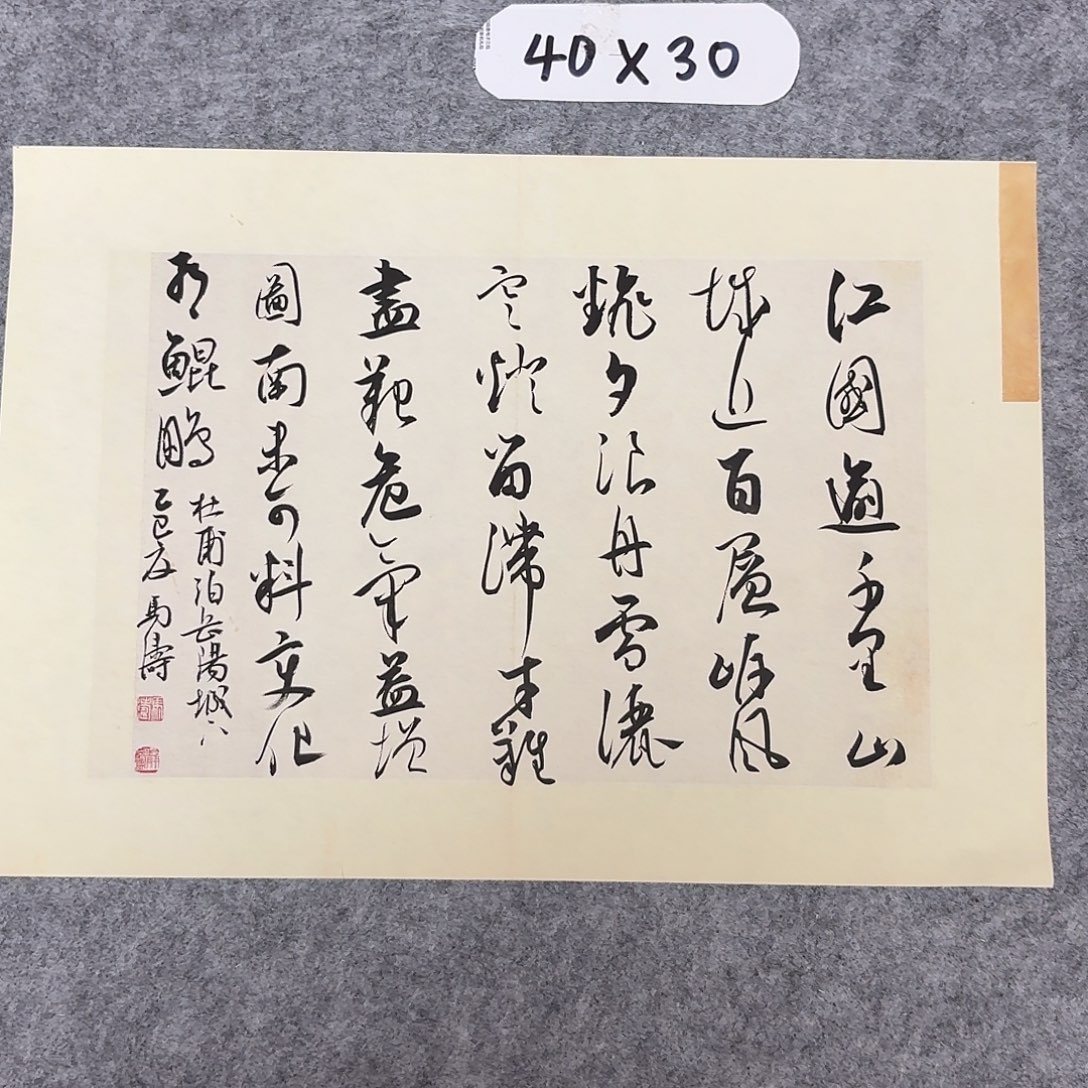 40X30
江國逾千里山
城近百層岸風
飜夕浪舟雪灑
寒燈留滯才難
盡艱危氣益增
圖南未可料變化
有鯤鵬
杜甫泊岳陽城下
乙巳夏馬濤